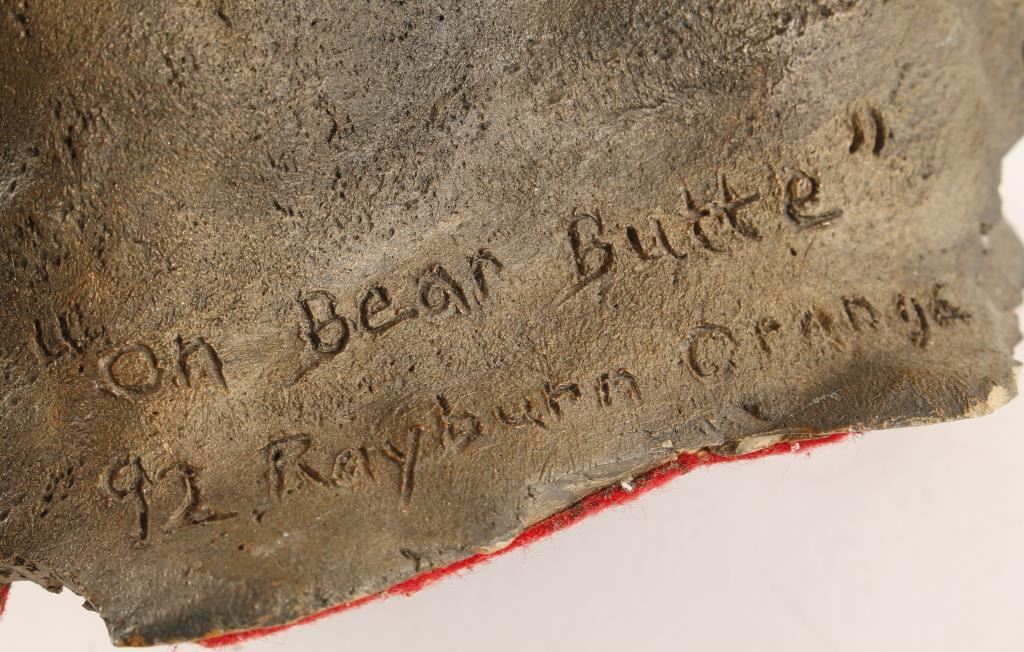 "On Bear Butte"
'92 Rayburn Orange